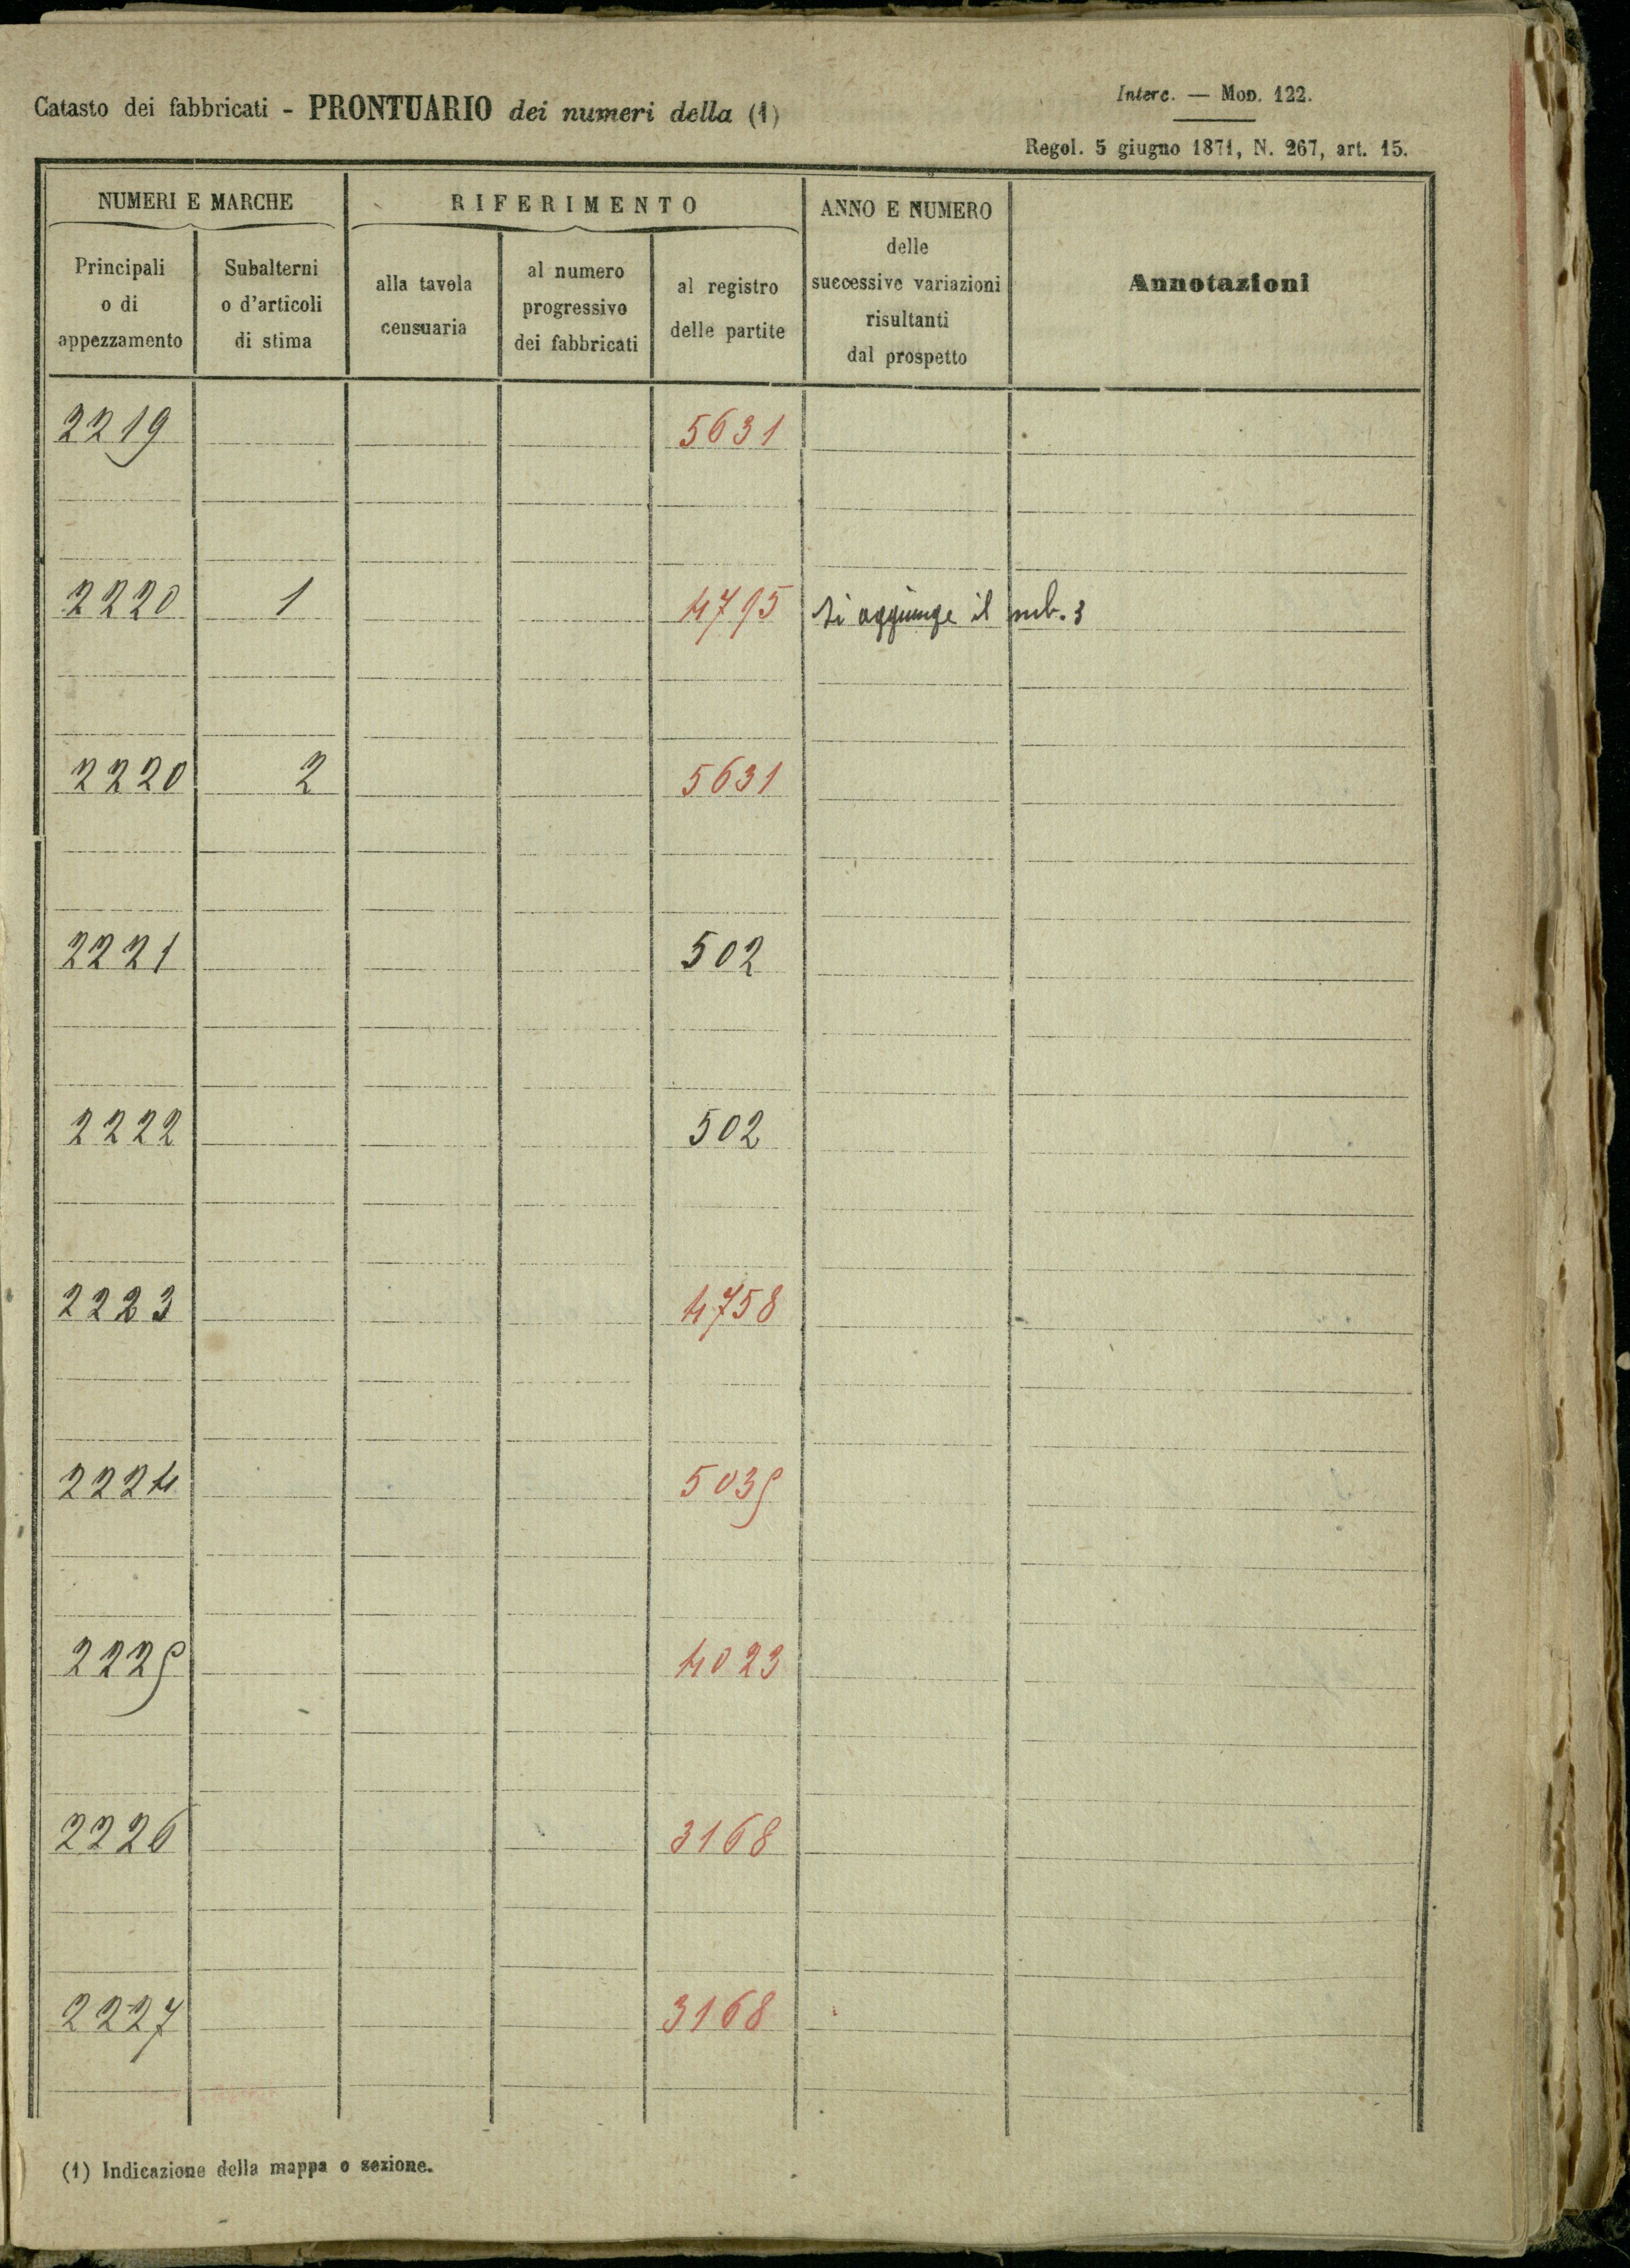 Catasto dei fabbricati - PRONTUARIO dei numeri della (1)
Interc. — Mod. 122.
Regol. 5 giugno 1871, N. 267, art. 15.
NUMERI E MARCHE
RIFERIMENTO
ANNO E NUMERO
delle
successive variazioni
risultanti
dal prospetto
Annotazioni
Principali
o di
appezzamento
Subalterni
o d'articoli
di stima
alla tavola
censuaria
al numero
progressivo
dei fabbricati
al registro
delle partite
2219 5631
2220 1 4795 si aggiunge il sub. 3
2220 2 5631
2221 502
2222 502
2223 4758
2224 5035
2225 4023
2226 3168
2227 3168
(1) Indicazione della mappa o sezione.